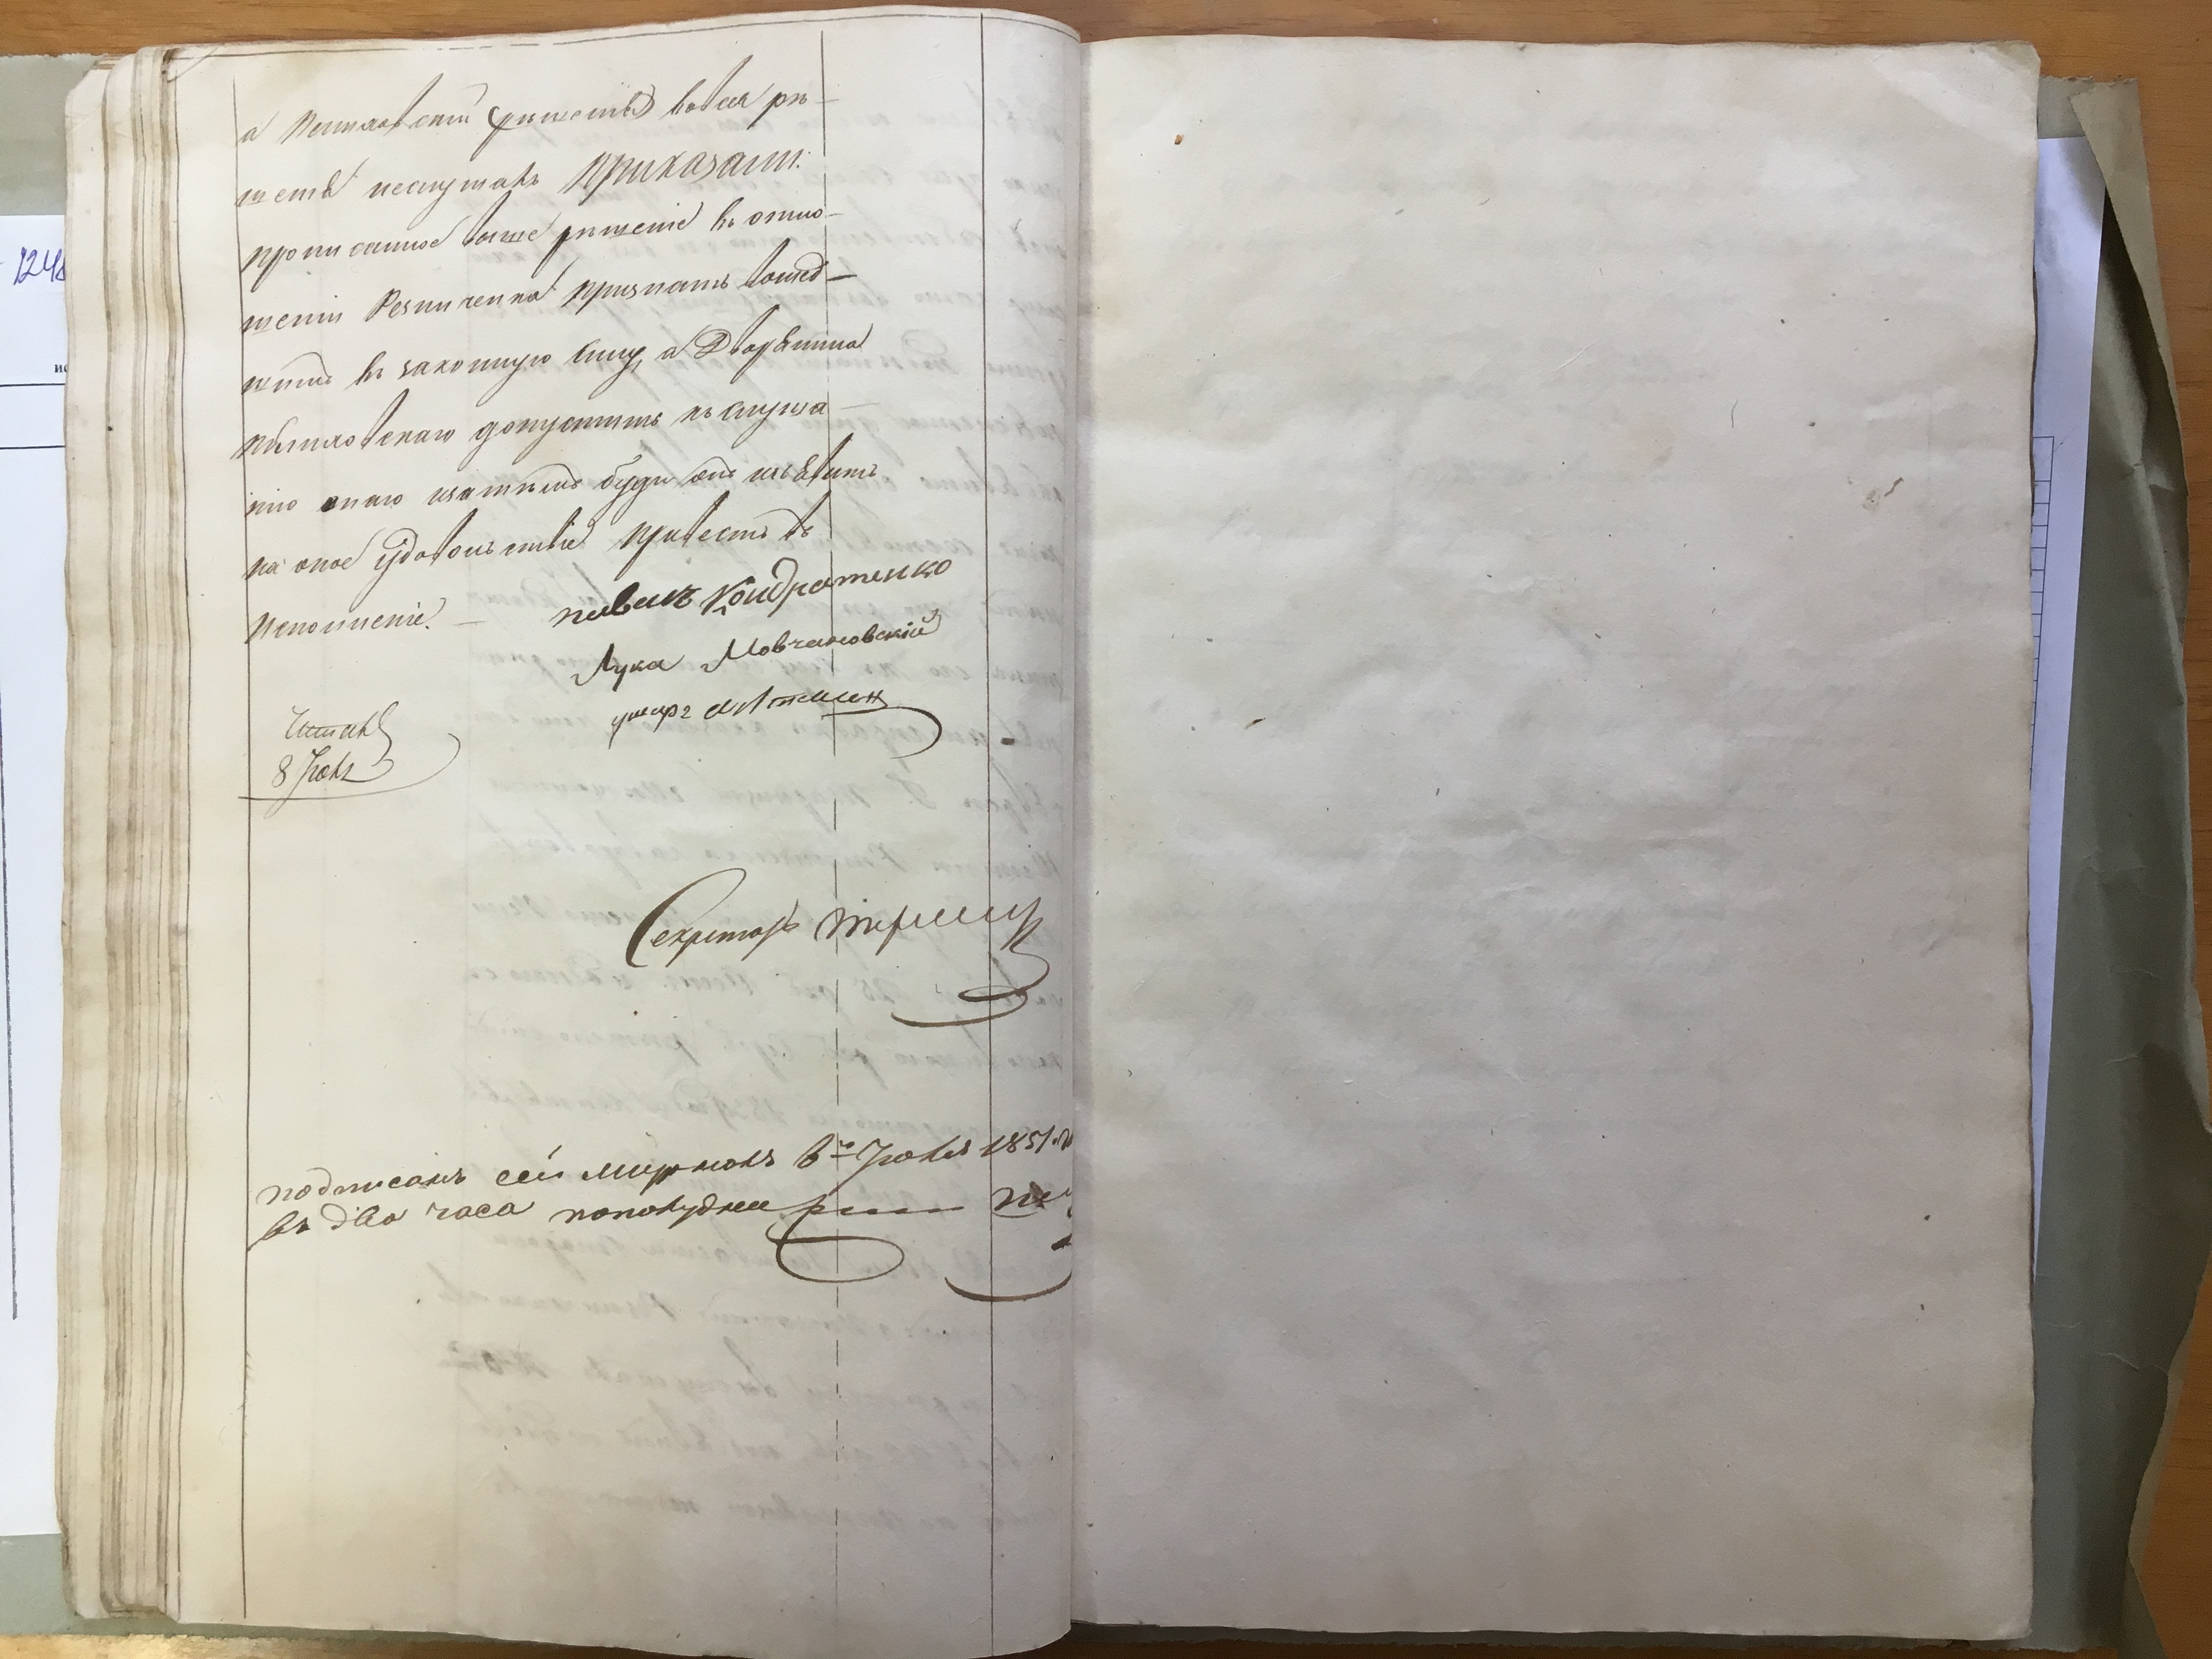 124
а решенія вовся рѣ-
шенія неслушалъ Приказали:
прописанное выше рѣшеніе въ отно-
шеніи Резниченка признать вошед-
шимъ въ законную силу, а Дворянина
допустить къ слуша-
нію онаго и затѣмъ буди онъ изъявитъ
на оное удовольствіе привесть въ
исполненіе. —
Кондратенко
Лука Мовчановскій
Читалъ
8 Іюля
Секретарь
подписанъ сей журналъ 8го Іюля 1851 г
въ два часа пополудни